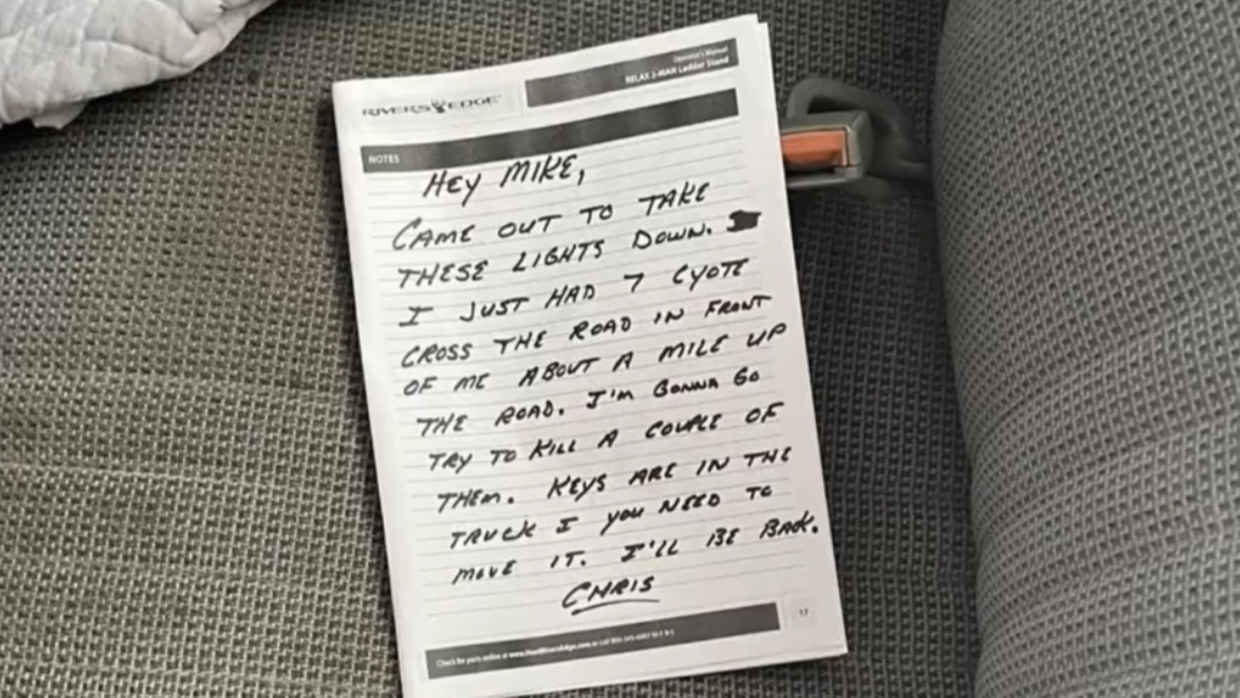 Operator's Manual
RIVERS EDGE
RELAX 2-MAN Ladder Stand
NOTES
HEY MIKE,
CAME OUT TO TAKE
THESE LIGHTS DOWN.
I JUST HAD 7 CYOTE
CROSS THE ROAD IN FRONT
OF ME ABOUT A MILE UP
THE ROAD. I'M GONNA GO
TRY TO KILL A COUPLE OF
THEM. KEYS ARE IN THE
TRUCK I YOU NEED TO
MOVE IT. I'LL BE BACK.
CHRIS
17
Check for parts online at or call